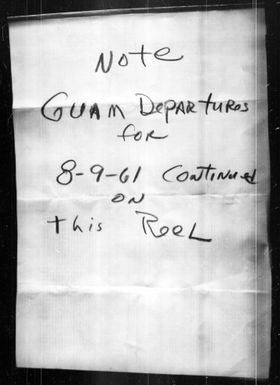 Note
Guam Departuros
for
8-9-61 Continued
on
this Reel